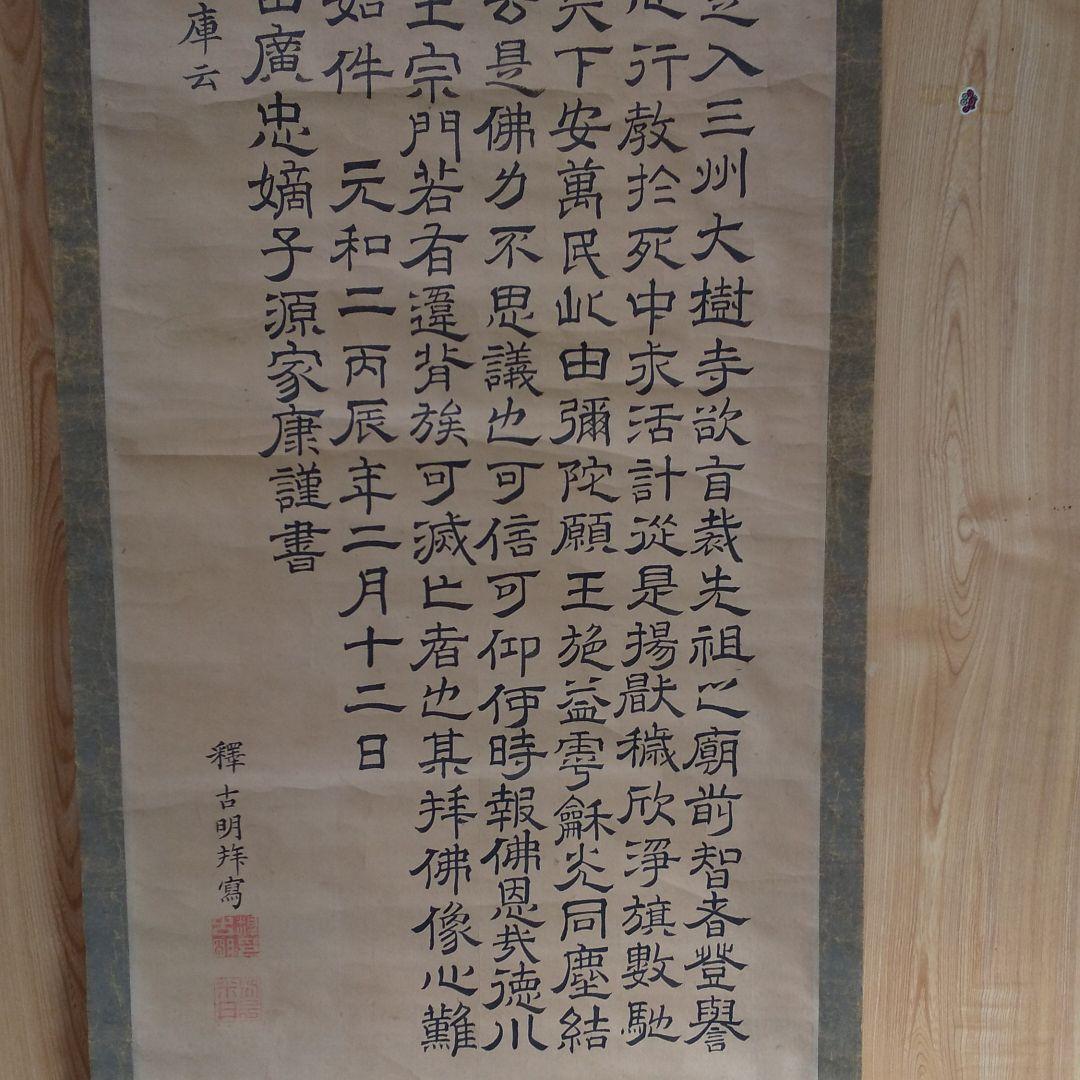 入三州大樹寺欲自裁先祖之廟前智者登譽
行教於死中求活計從是揚厭穢欣淨旗數馳
天下安萬民此由彌陀願王施益雩龢光同塵結
是佛力不思議也可信可仰何時報佛恩哉德川
宗門若有違背族可滅亡者也某拜佛像心難
如件 元和二丙辰年二月十二日
田廣忠嫡子源家康謹書
庫云
釋古明拜寫